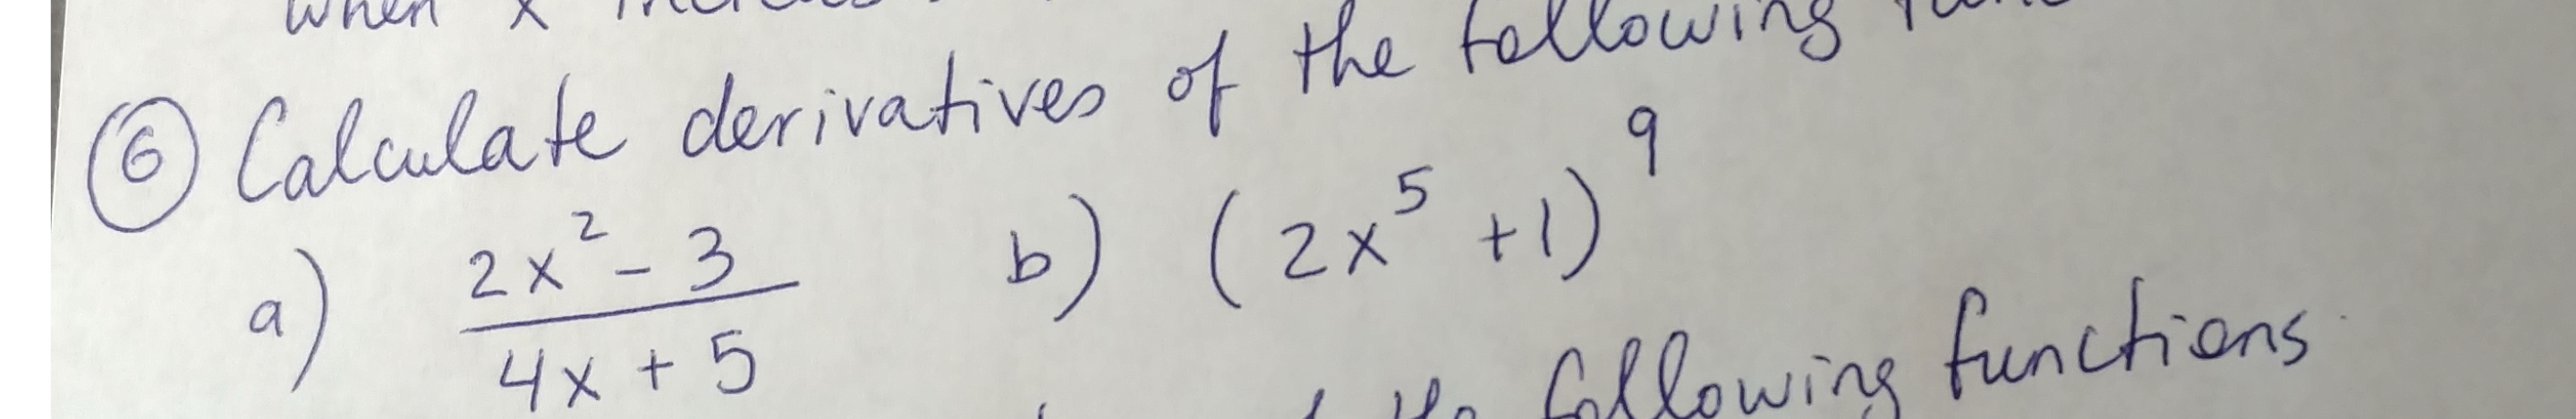 when x
⑥ Calculate derivatives of the following
a) \frac{2x^2 - 3}{4x + 5} b) (2x^5 + 1)^9
following functions.